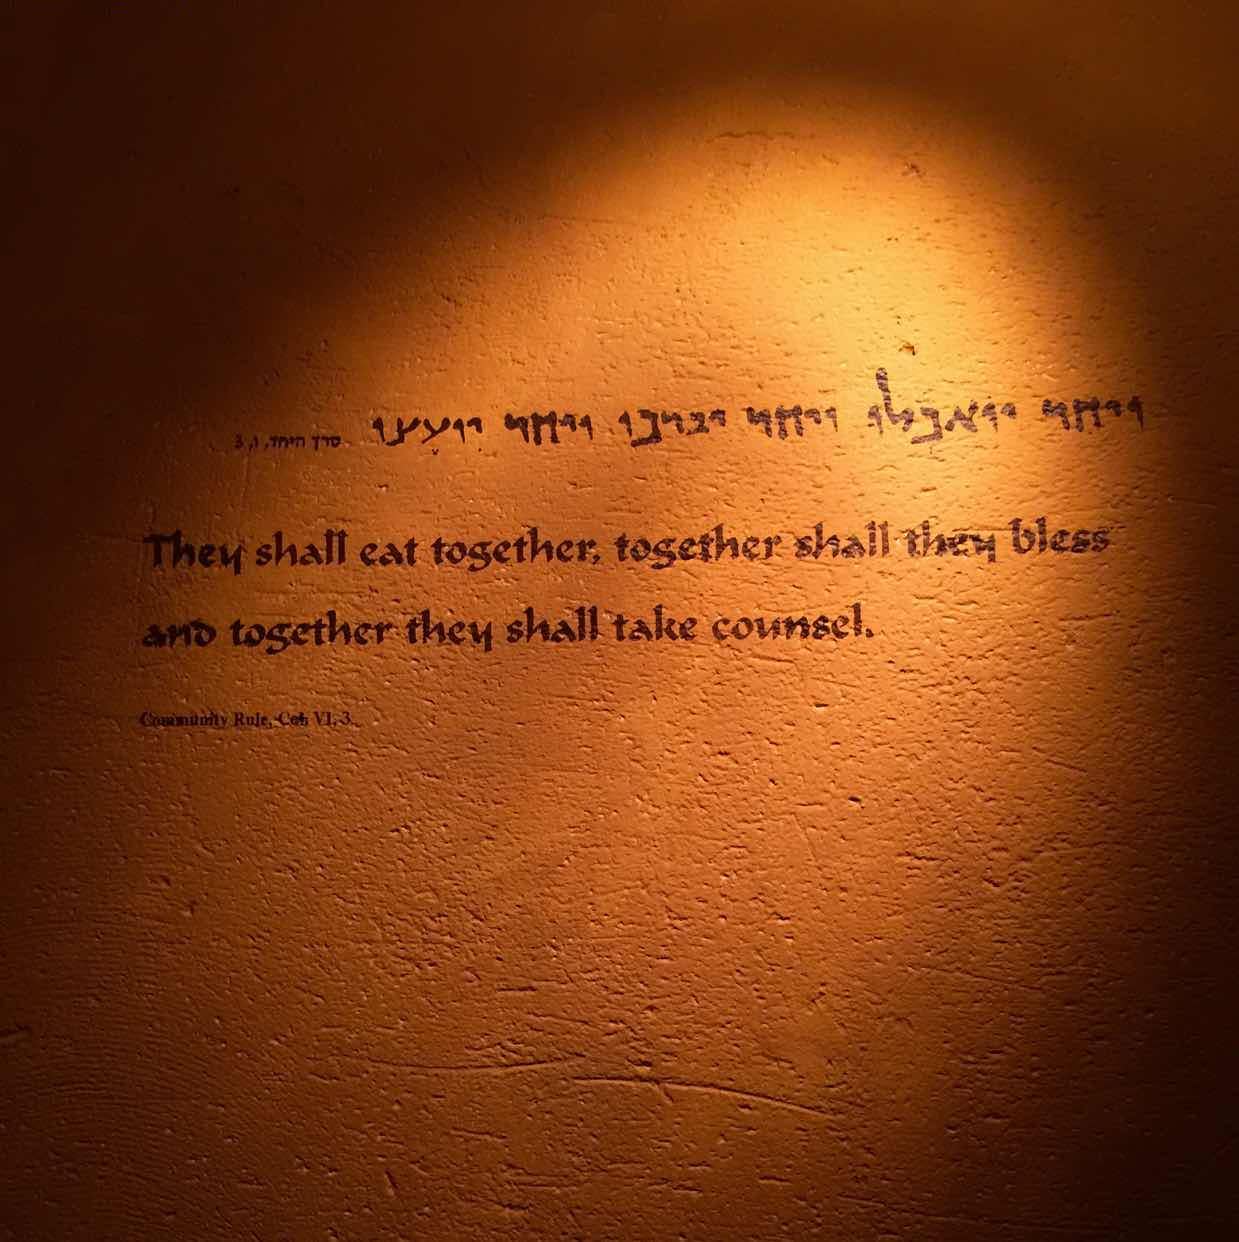 ויחד יואכלו ויחד יברכו ויחד יועצו סרך היחד, ו, 3
They shall eat together, together shall they bless
and together they shall take counsel.
Community Rule, Col. VI, 3.